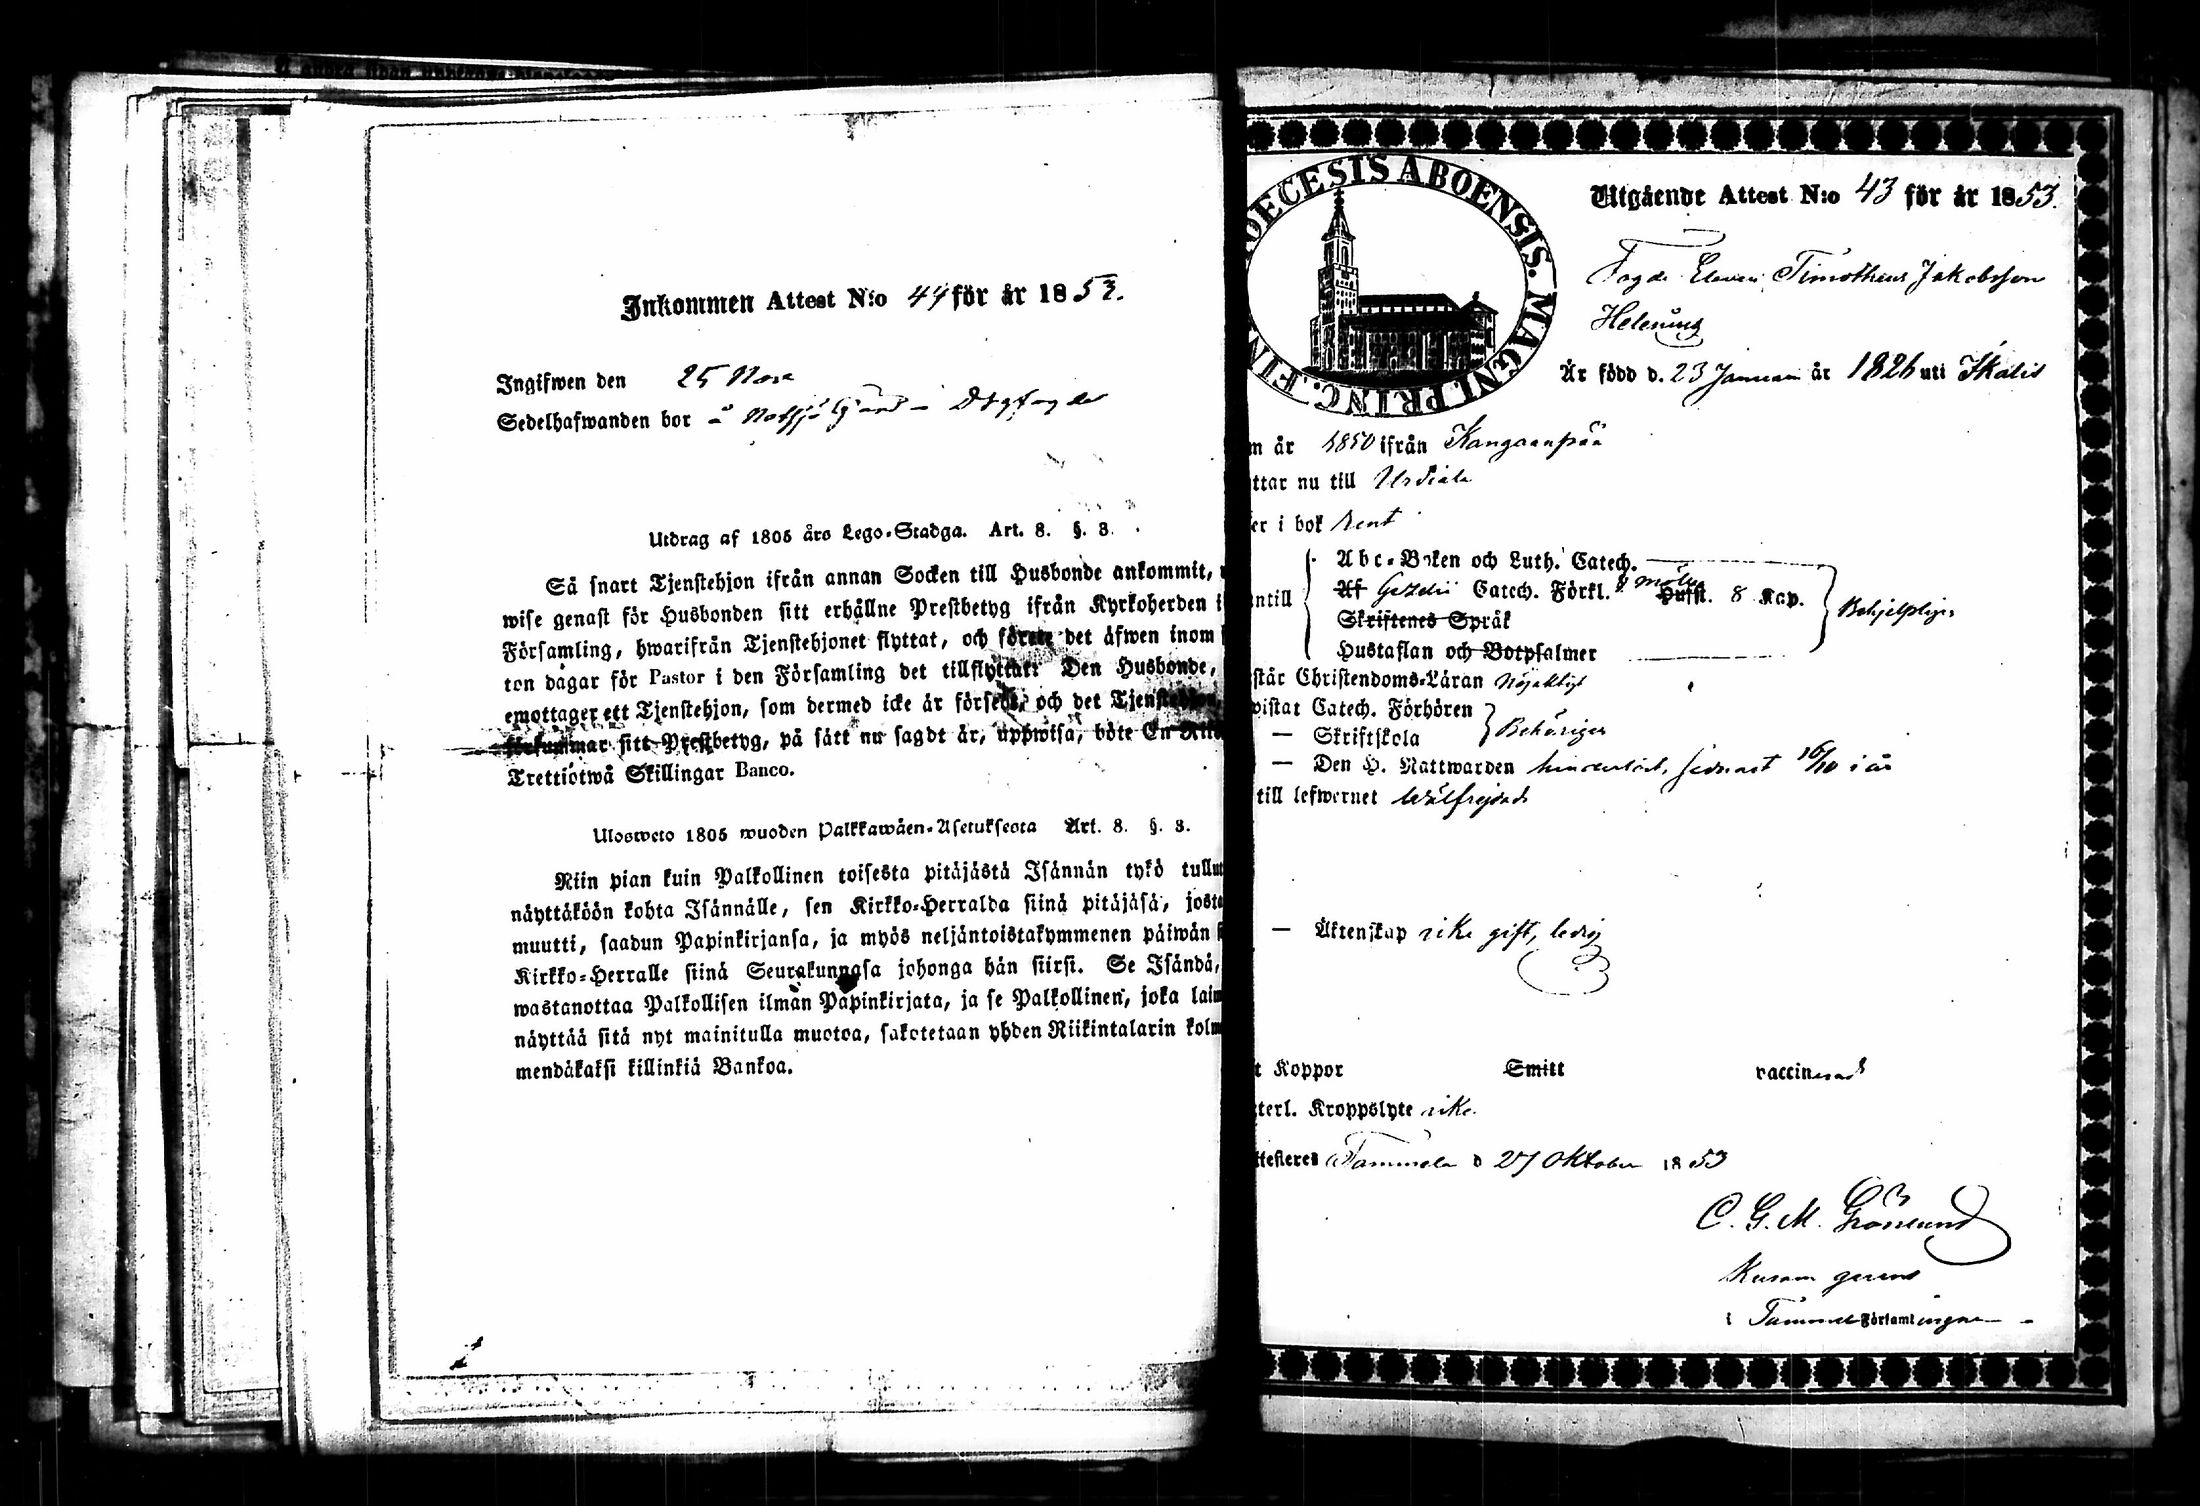 Inkommen Attest N:o 44 för år 1853.
Ingifwen den 25 Nov
Sedelhafwanden bor å Gård
Utdrag af 1805 års Lego-Stadga. Art. 8. §. 3.
Så snart Tjenstehjon ifrån annan Socken till Husbonde ankommit,
wise genast för Husbonden sitt erhållne Prestbetyg ifrån Kyrkoherden i
Församling, hwarifrån Tjenstehjonet flyttat, och förete det äfwen inom
ton dagar för Pastor i den Församling det tillflyttat: Den Husbonde,
emottager ett Tjenstehjon, som dermed icke är försedt, och det Tjenstehjon,
försummar sitt Prestbetyg, på sätt nu sagdt är, uppwisa, böte En
Trettiotwå Skillingar Banco.
Ulosweto 1805 wuoden Palkkawäen-Asetuksesta Art. 8. §. 3.
Niin pian kuin Palkollinen toisesta pitäjästä Isännän tykö tullut
näyttäköön kohta Isännälle, sen Kirkko-Herralda siinä pitäjäsä, josta
muutti, saadun Papinkirjansa, ja myös neljäntoistakymmenen päiwän
Kirkko-Herralle siinä Seurakunnasa johonga hän siirsi. Se Isändä,
wastanottaa Palkollisen ilman Papinkirjata, ja se Palkollinen, joka
näyttää sitä nyt mainitulla muotoa, sakotetaan yhden Riikintalarin
mendäkaksi killinkiä Bankoa.
DECESIS ABOENSIS. MAGNI PRINC. FIN
Utgående Attest N:o 43 för år 1853.
Fogde Eleven Timotheus Jakobsson
Helenius
Är född d. 23 Januari år 1826 uti Ikalis
m år 1850 ifrån Kangaanpää
ttar nu till Urdiala
er i bok rent
Abc-Boken och Luth. Catech.
Af Gezelii Catech. Förkl. Hufst. 8 Kap.
ntill
Behjelpligen
Skriftenes Språk
Hustaflan och Botpsalmer
står Christendoms-Läran Nöjaktigt
wistat Catech. Förhören
Behörigen
— Skriftskola
— Den H. Nattwarden hinderlöst, sednast 16/10 i år
till lefwernet wälfrejdad
— Äktenskap icke gift, ledig
t Koppor Smitt vaccinerad
terl. Kroppslyte icke
ttesteres Tammela d 27 Oktober 1853
C. G. M. Grönlund
gerens
i Tammela Församlingar